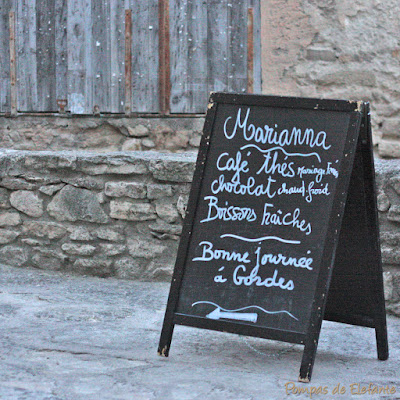 Marianna
Café thés Mariage Frères
chocolat chaud, froid
Boissons Fraîches
Bonne journée
à Gordes
Pompas de Elefante